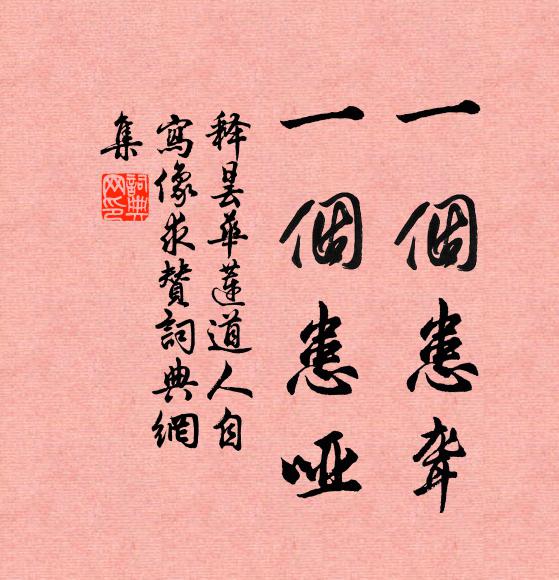 一個患聋
一個患哑
释曇華蓮道人自
寫像求賛詞典網
集
詞典
网印